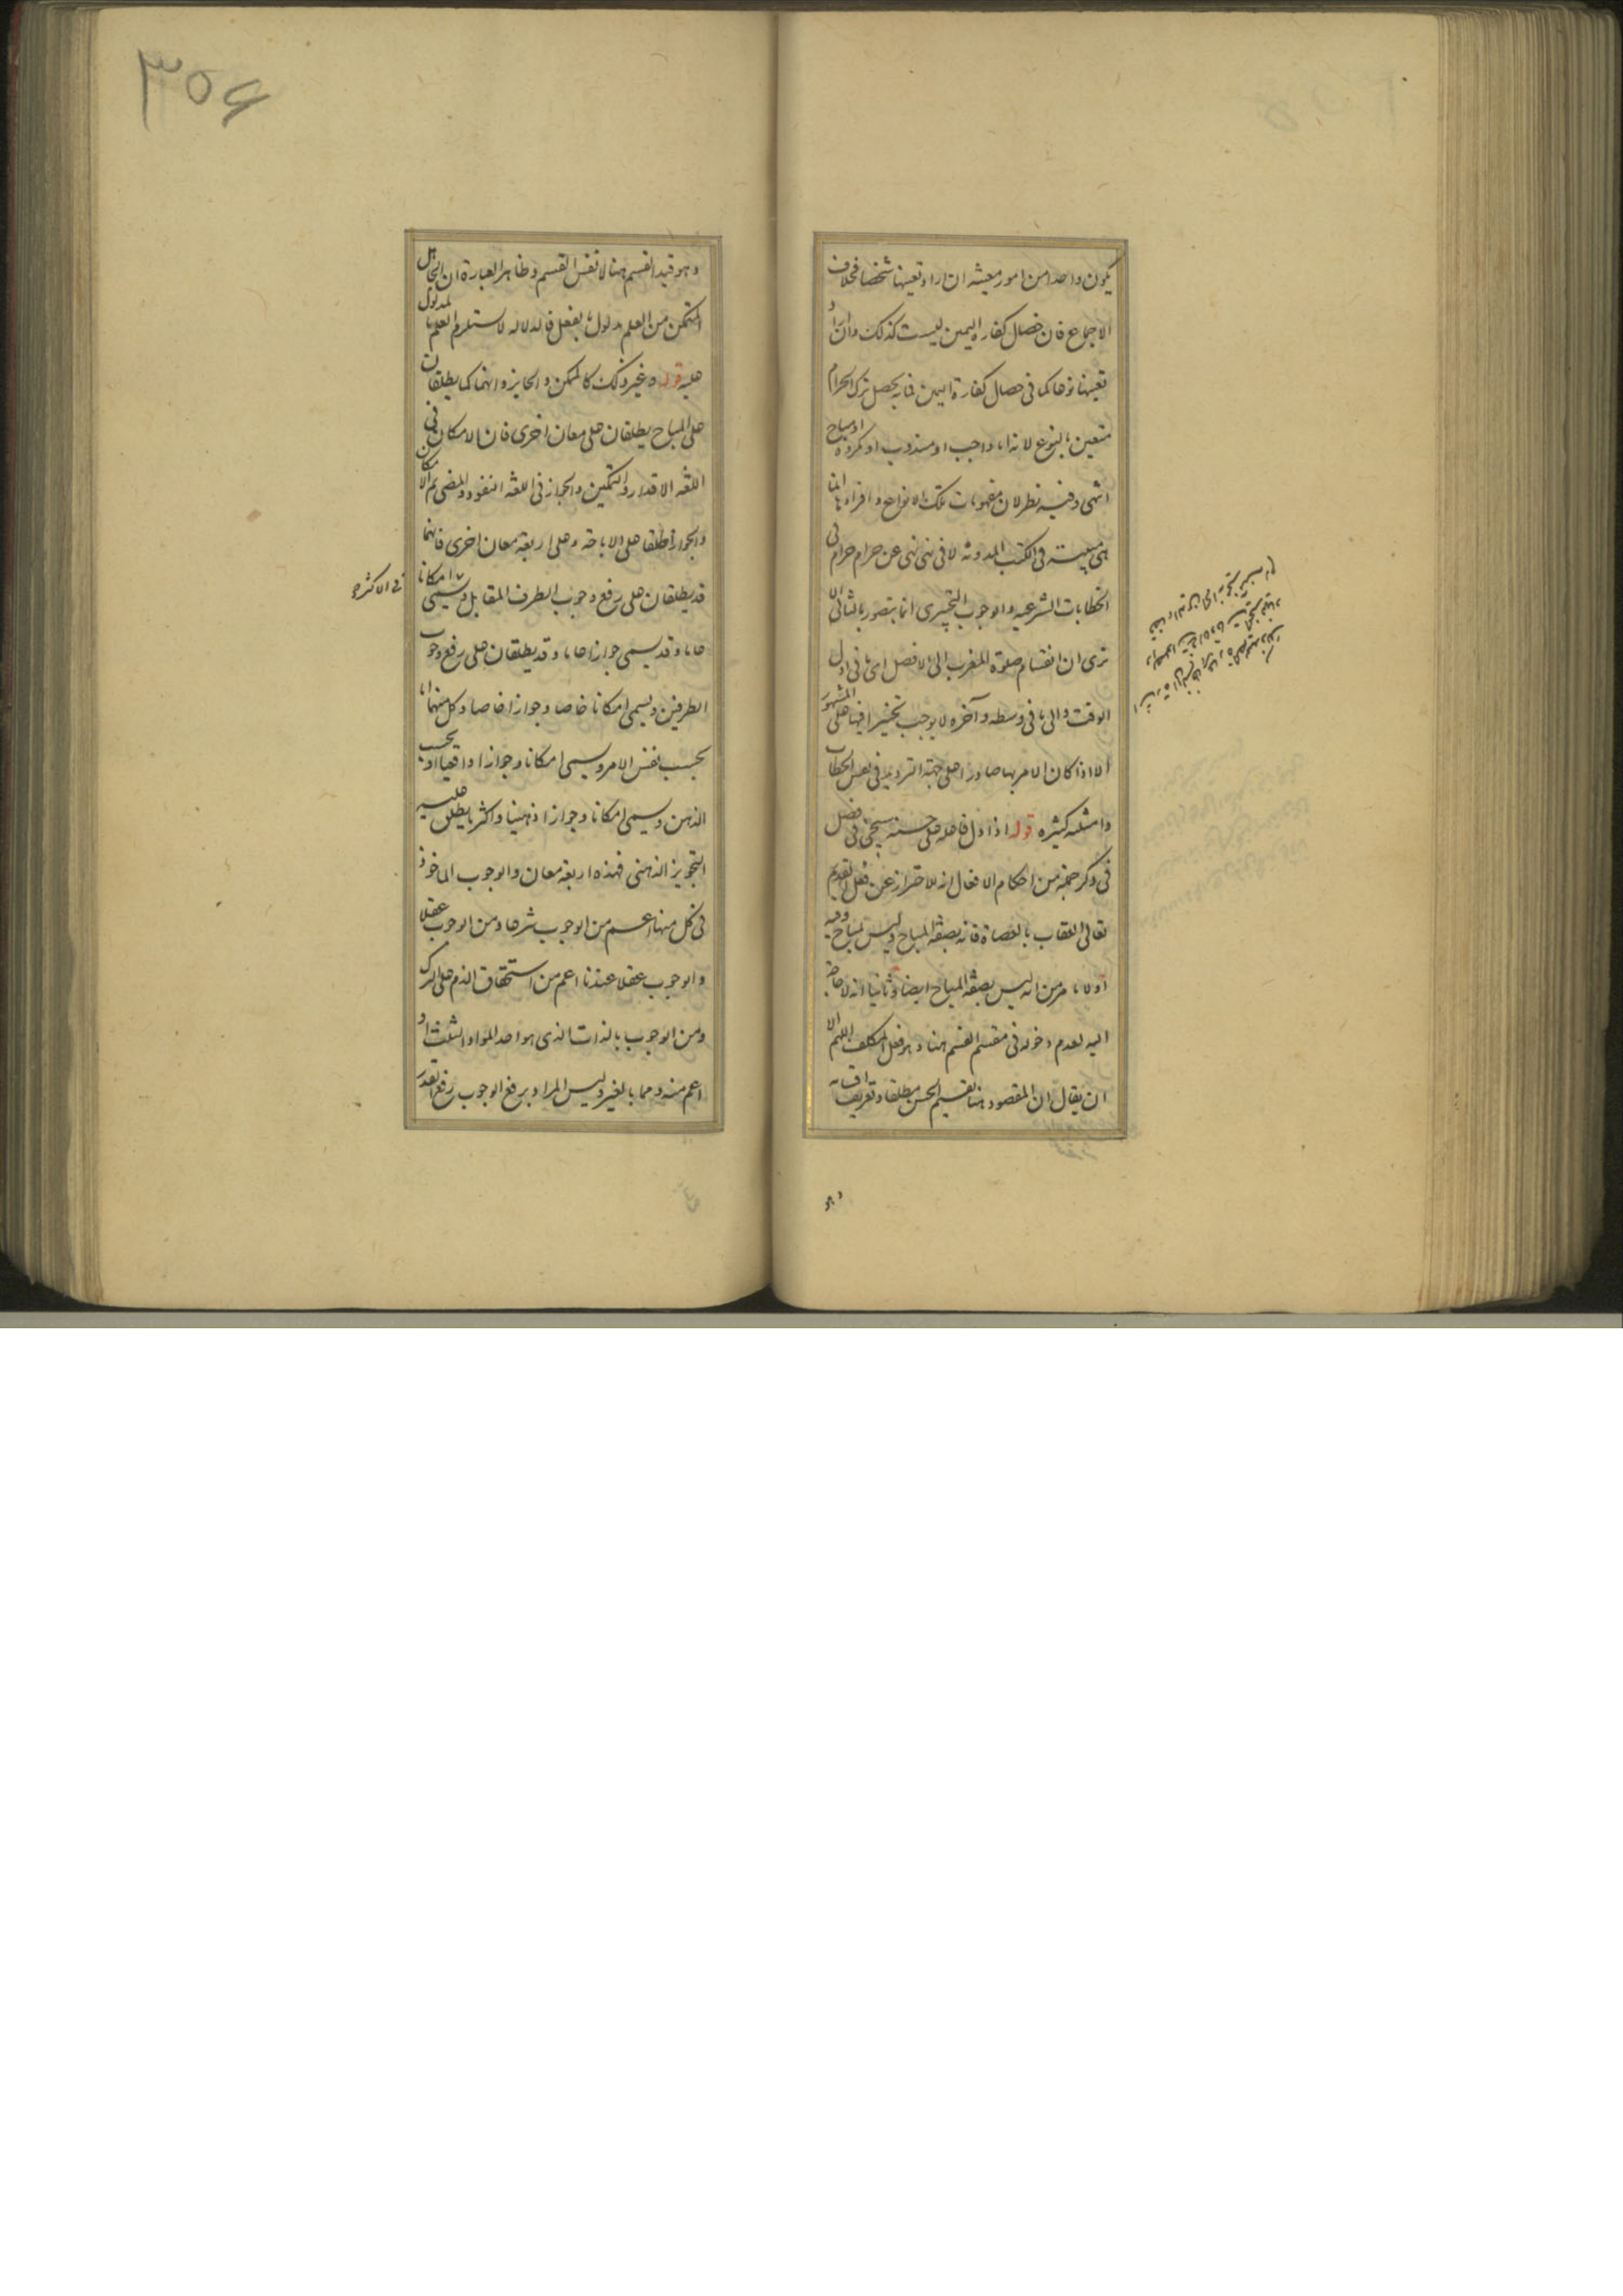 يكون واحدا من امور معينة ان اراد تعينها شخصا فخلاف
الاجماع فان خصال كفارة اليمين ليست كذلك وان اراد
تعينها نوعا كما في خصال كفارة اليمين فما يحصل ترك الحرام
متعين بالنوع لانه اما واجب او مندوب او مكروه او مباح
انتهى وفيه نظر لان مفهومات تلك الانواع وافرادها انما
هي مبينة في الكتب المدونة لا في نهي عن حرام حرام في
الخطابات الشرعية والوجوب التخييري انما يتصور بالثاني الا
ترى ان انقسام صلوة المغرب الى الافضل اي في اول
الوقت والى ما في وسطه وآخره لا يوجب تخييرا فيها على المشهور
الا اذا كان الامر بها صادرا على جهة الترديد في نفس الخطاب
وامثلته كثيرة قوله اذا دل فاعله على حسنه سيجيء في فصل
في ذكر جملة من احكام الافعال انه للاحتراز عن فعل القديم
تعالى العقاب بالعصاة فانه بصفة المباح وليس بمباح وفيه
اولا ما مر من انه ليس بصفة المباح ايضا وثانيا انه لا حاجة
اليه لعدم دخوله في مقسم القسم هنا وهو فعل المكلف اللهم الا
ان يقال ان المقصود هنا تقسيم الحسن مطلقا وتعريف اقسامه
وهو
٣٥٤
وهو قيد القسم هنا لا نفس القسم وظاهر العبارة ان
المتمكن من العلم بمدلول ما بفعل فالدلالة لا تستلزم العلم بالمدلول
عليه قوله وغير ذلك كالممكن والجايز وانهما كما يطلقان
على المباح يطلقان على معان اخرى فان الامكان في
اللغة الاقدار والتمكين والجواز في اللغة النفوذ والمضي ثم الامكان
والجواز اطلقا على الاباحة وعلى اربعة معان اخرى فانهما
قد يطلقان على رفع وجوب الطرف المقابل ويسمى امكانا
في الاكثر
عاما وقد يسمى جوازا عاما وقد يطلقان على رفع وجوب
الطرفين ويسمى امكانا خاصا وجوازا خاصا وكل منهما اما
بحسب نفس الامر ويسمى امكانا وجوازا واقعيا او بحسب
الذهن ويسمى امكانا وجوازا ذهنيا واكثر ما يطلق عليه
التجويز الذهني فهذه اربعة معان والوجوب الماخوذ
في كل منها اعم من الوجوب شرعا ومن الوجوب عقلا
والوجوب عقلا عندنا اعم من استحقاق الذم على الترك
ومن الوجوب بالذات الذي هو احد المواد الثلث او
اعم منه ومما بالغير وليس المراد برفع الوجوب رفع